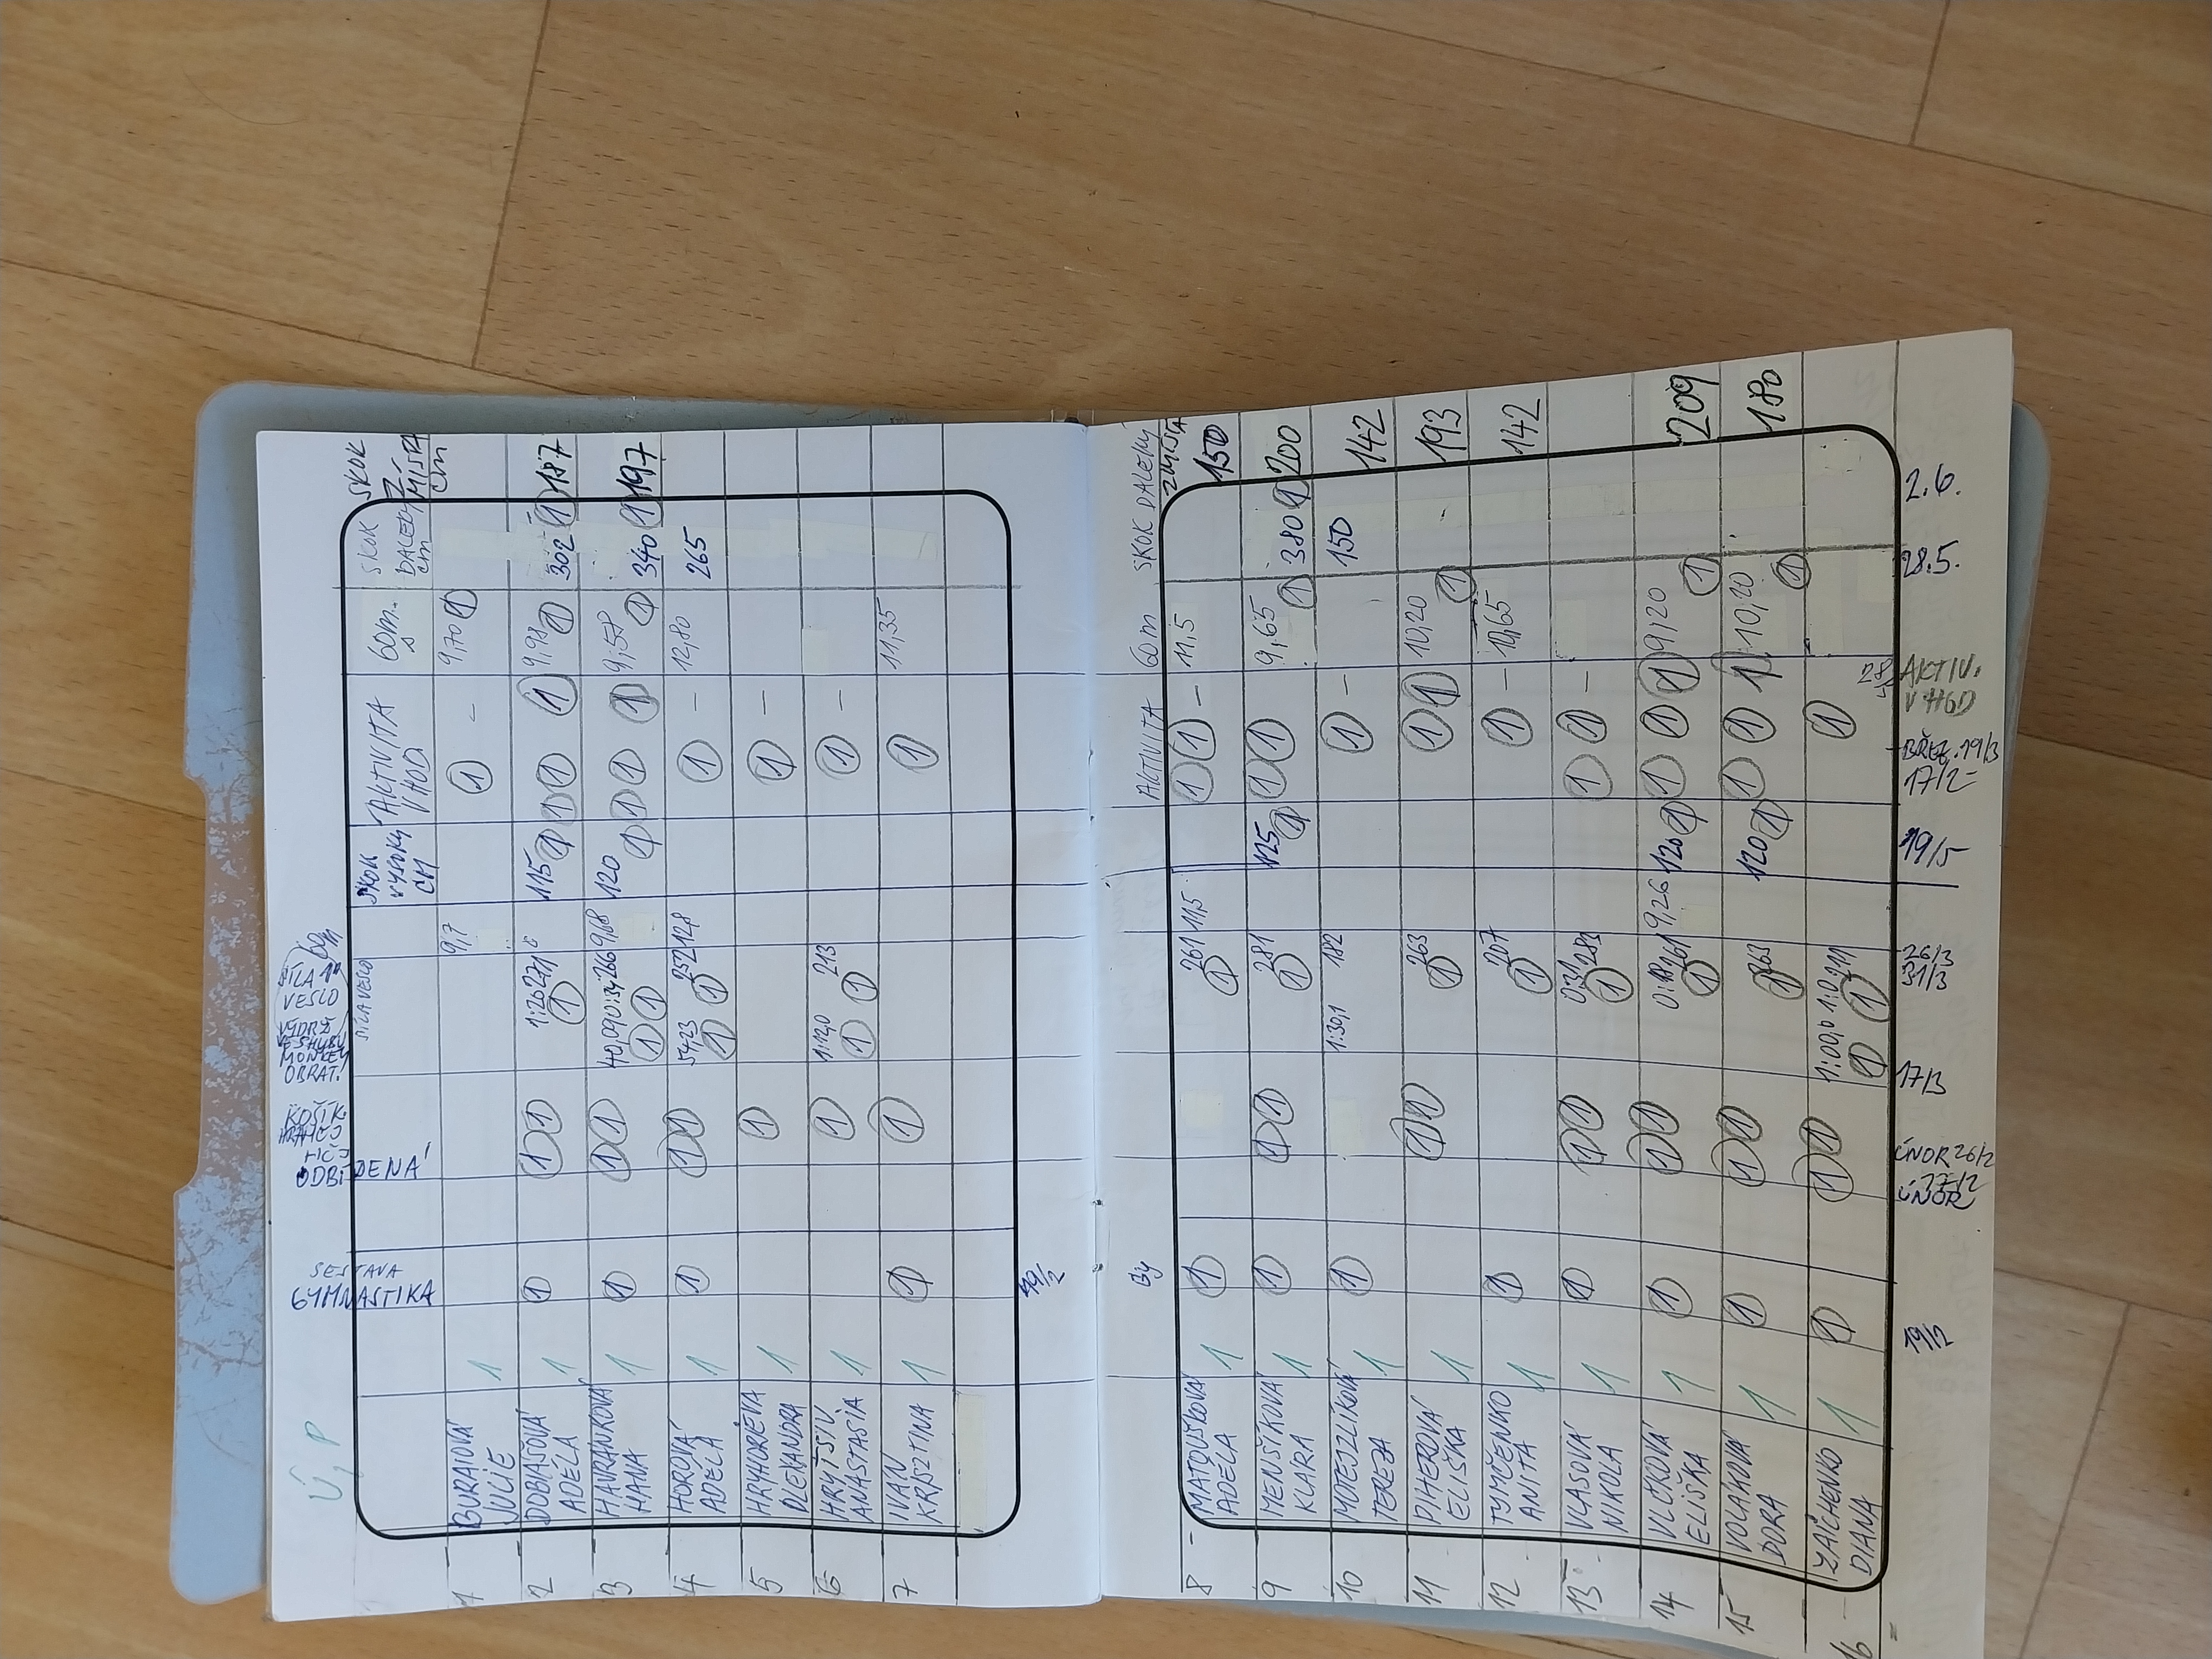 Ú, P
SESTAVA
GYMNASTIKA
ODBÍJENÁ
KOŠÍK.
VÝDRŽ
VE SHYBU
MONKEY
OBRAT.
SÍLA
VESLO
SÍLA VESLO
SKOK
VYSOKÝ
CM
AKTIVITA
V HOD
60m.
s
SKOK
DALEKÝ
cm
SKOK
Z
MÍSTA
cm
1 BURAIOVÁ JULIE 1 9,7 1 - 9,70 1
2 DOBIAŠOVÁ ADÉLA 1 1 1 1 1:26 271 1 115 1 1 1 1 9,98 1 302 1 187
3 HAVRÁNKOVÁ HANA 1 1 1 1 40,09 0:34 266 9,68 1 1 120 1 1 1 1 9,58 1 340 1 197
4 HOROVÁ ADÉLA 1 1 1 1 54,23 1 252 1 12,8 1 - 12,80 265
5 HRYHORIEVA OLEXANDRA 1 1 1 -
6 HRYTSIV ANASTASIA 1 1 1:12,0 1 213 1 1 -
7 IVAN KRISZTINA 1 1 1 1 11,35
By
AKTIVITA
60m
SKOK DALEKÝ
Z MÍSTA
8 MATOUŠKOVÁ ADÉLA 1 1 261 1 11,5 1 1 - 11,5 150
9 MENŠÍKOVÁ KLARA 1 1 1 1 281 1 125 1 1 1 9,65 1 380 1 200
10 MOTEJZLÍKOVÁ TEREZA 1 1 1:30,1 182 1 - 150 142
11 PIHEROVÁ ELIŠKA 1 1 1 263 1 1 1 10,20 1 193
12 TYMČENKO ANITA 1 1 207 1 1 - 142
13 VLASOVÁ NIKOLA 1 1 1 1 0:31 283 1 1 1 -
14 VLČKOVÁ ELIŠKA 1 1 1 1 261 1 9,26 120 1 1 1 1 9,20 1 209
15 VOLÁKOVÁ DORA 1 1 1 1 263 1 120 1 1 1 1 10,20 1 180
16 ZAICHENKO DIANA 1 1 1 1 1:00,0 1 1 1
19/2
ÚNOR
ÚNOR 26/2
17/3
26/3
31/3
19/5
17/2
BŘEZ. 19/3
AKTIV.
V HOD
28.5.
2.6.